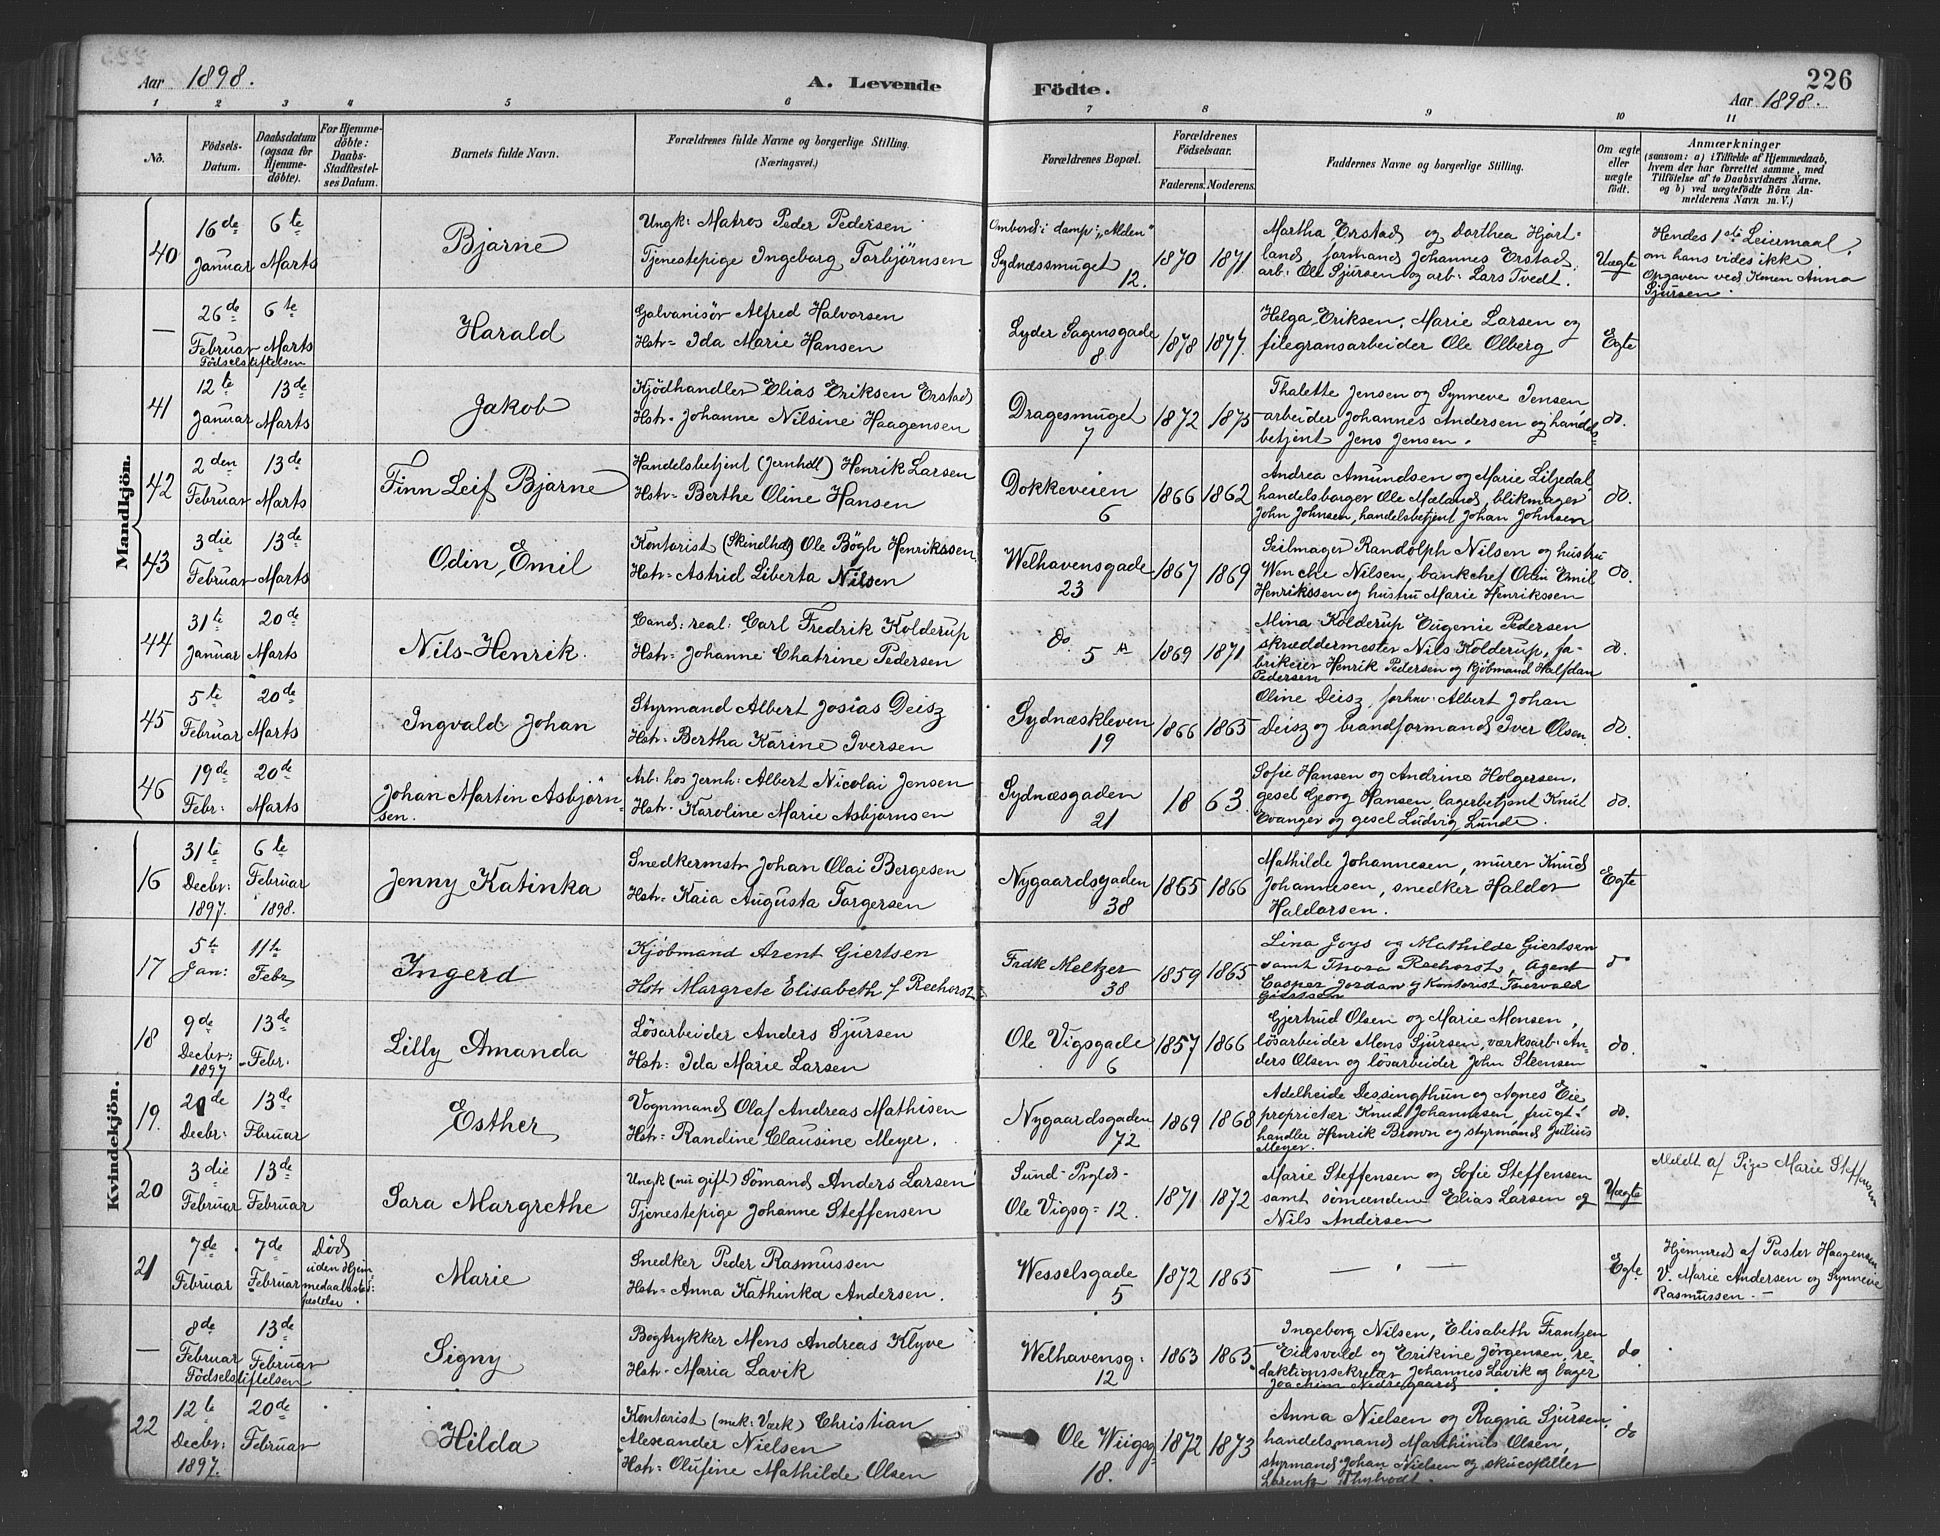 Aar 1898.
A. Levende
Födte.
226
Aar 1898.
1 2 3 4 5 6 7 8 9 10 11
No.
Födsels-Datum.
Daabsdatum (ogsaa for Hjemmedöbte).
For Hjemmedöbte: Daabs-Stadfæstelses Datum.
Barnets fulde Navn.
Forældrenes fulde Navne og borgerlige Stilling. (Næringsvei.)
Forældrenes Bopæl.
Forældrenes Födselsaar.
Faderens. Moderens.
Faddernes Navne og borgerlige Stilling.
Om ægte eller uægte födt.
Anmærkninger
(saasom: a) i Tilfælde af Hjemmedaab, hvem der har forrettet samme, med Tilföielse af to Daabsvidners Navne, og b) ved uægtefödte Börn Anmelderens Navn m. V.)
Mandkjön.
40
16de Januar
6te Marts
Bjarne
Ungk: Matros Peder Pedersen
Tjenestepige Ingeborg Torbjörnsen
Ombord i damp: "Alden"
Sydnæssmuget 12.
1870 1871
Martha Erstad og Dorthea Hjort-
land, formand Johannes Erstad,
arb: Ole Sjursen og arb: Lars Tvedt.
Uægte
Hendes 1ste Leiermaal,
om hans vides ikke
Opgaven ved Konen Anna
Sjursen.
—
26de Februar
6te Marts
Födselstiftelsen
Harald
Galvanisör Alfred Halvorsen
Hstr: Ida Marie Hansen
Lyder Sagensgade 8
1878 1877.
Helga Eriksen, Marie Larsen og
filegransarbeider Ole Olberg
Egte
41
12te Januar
13de Marts
Jakob
Kjödhandler Elias Eriksen Erstad
Hstr: Johanne Nilsine Haagensen
Dragesmuget 7
1872 1875
Thalette Jensen og Synneve Jensen
arbeider Johannes Andersen og handels
betjent Jens Jensen.
do.
42
2den Februar
13de Marts
Finn Leif Bjarne
Handelsbetjent (Jernhdl) Henrik Larsen
Hstr: Berthe Oline Hansen
Dokkeveien 6
1866 1862
Andrea Amundsen og Marie Liljedal
handelsborger Ole Mæland, blikmager
John Johnsen, handelsbetjent Johan Johnsen
do.
43
3die Februar
13de Marts
Odin Emil
Kontorist (Skindhdl) Ole Bögh Henrikssen
Hstr: Astrid Liberta Nilsen
Welhavensgade 23
1867 1869
Seilmager Randolph Nilsen og hustru
Wenche Nilsen, bankchef Odin Emil
Henrikssen og hustru Marie Henrikssen
do.
44
31te Januar
20de Marts
Nils-Henrik.
Cand: real: Carl Fredrik Kolderup
Hstr: Johanne Chatrine Pedersen
do. 5 A
1869 1871
Mina Kolderup Eugenie Pedersen
skræddermester Nils Kolderup, fa-
brikeier Henrik Pedersen og kjöbmand Halfdan
Pedersen
do.
45
5te Februar
20de Marts
Ingvald Johan
Styrmand Albert Josias Deisz
Hstr: Bertha Karine Iversen
Sydnæskleven 19
1866 1865
Oline Deisz, Albert Johan
Deisz og brandformand Iver Olsen
do.
46
19de Febr:
20de Marts
Johan Martin Asbjörn-
sen.
Arb: hos Jernh: Albert Nicolai Jensen
Hstr: Karoline Marie Asbjörnsen
Sydnæsgaden 21
1863.
Sofie Hansen og Andrine Holgersen,
gesel Georg Hansen, lagerbetjent Knut
Evanger og gesel Ludvig Lunde.
do.
Kvindekjön.
16
31te Decbr: 1897.
6te Februar 1898.
Jenny Katinka
Snedkermstr Johan Olai Bergesen
Hstr: Kaia Augusta Torgersen
Nygaardsgaden 38
1865 1866
Mathilde Johannesen, murer Knud
Johannesen, snedker Haldor
Haldorsen.
Egte
17
5te Jan:
11te Febr
Ingerd
Kjöbmand Arent Giertsen
Hstr Margrete Elisabeth f Reehorst
Fredk Meltzer 38
1859 1865
Lina Joys og Mathilde Giertsen
samt Thora Reehorst, Agent
Casper Jordan og Kontorist Thorvald
Giertsen
do
18
9de Decbr: 1897
13de Febr.
Lilly Amanda
Lösarbeider Anders Sjursen
Hstr: Ida Marie Larsen
Ole Vigsgade 6
1857 1866
Gjertrud Olsen og Marie Monsen,
lösarbeider Mons Sjursen, værksarb: An-
ders Olsen og lösarbeider John Steensen
do.
19.
de Decbr:
13de Februar
Esther
Vognmand Olaf Andreas Mathisen
Hstr: Randine Clausine Meyer.
Nygaardsgaden 72
1869 1868
Adelheide Dessingthun og Agnes Eie
proprietær Knud Johannesen, frugt-
handler Henrik Brown og styrmand Julius
Meyer.
do.
20
3die Februar
13de Februar
Sara Margrethe
Ungk (nu gift) Sömand Anders Larsen
Tjenestepige Johanne Steffensen
Ole Vigsg: 12.
1871 1872
Marie Steffensen og Sofie Steffensen
samt sömændene Elias Larsen og
Nils Andersen
Uægte
Meldt af Pige Marie Steffensen
21
7de Februar
7de Februar
Död uden Hjemmedaabsstadfæstelse
Marie
Snedker Peder Rasmussen
Hstr: Anna Kathinka Andersen.
Wesselsgade 5
1872 1865
— " —
Egte
Hjemmed af Pastor Haagensen
V. Marie Andersen og Synneve
Rasmussen. —
—
8de Februar
13de Februar
Födselstiftelsen
Signy
Bogtrykker Mons Andreas Klyve
Hstr: Maria Lavik
Welhavensg: 12
1863 1865
Ingeborg Nilsen, Elisabeth Frantzen
Eidsvold og Erikine Jörgensen, re-
daktionssekretær Johannes Lavik og bager
Joachim Nedregaard
do.
22
12te Decbr: 1897.
20de Februar
Hilda
Kontorist (mek: Værk) Christian
Alexander Nielsen
Hstr: Olufine Mathilde Olsen
Ole Wiigsg 18.
1872 1873
Anna Nielsen og Ragna Sjursen,
handelsmand Marthinus Olsen,
styrmand Johan Nielsen og skuespiller
Lorentz Thyholdt.
do